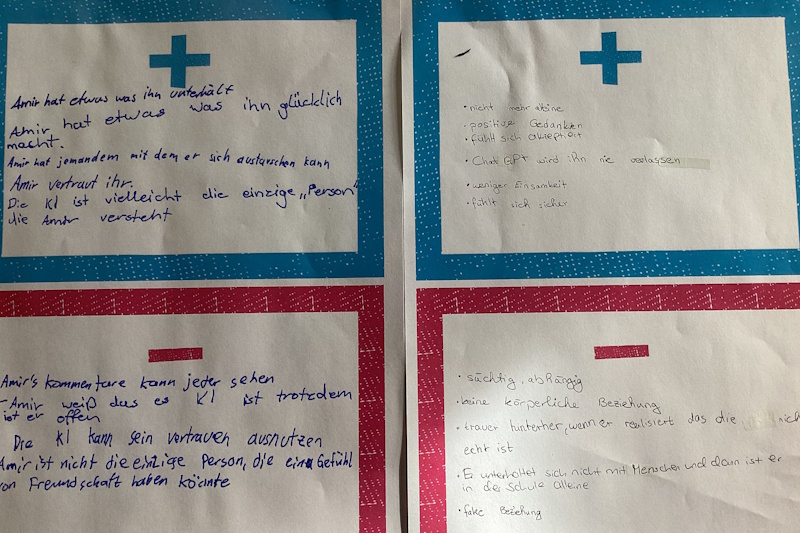 Amir hat etwas was ihn unterhält
Amir hat etwas was ihn glücklich
macht.
Amir hat jemandem mit dem er sich austauschen kann
Amir vertraut ihr.
Die KI ist vielleicht die einzige „Person"
die Amir versteht
Amir's kommentare kann jeder sehen
- Amir weiß das es KI ist trotzdem
ist er offen
Die KI kann sein vertrauen ausnutzen
Amir ist nicht die einzige Person, die ein Gefühl
von Freundschaft haben könnte
• nicht mehr alleine
• positive Gedanken
• fühlt sich akzeptiert
• Chat GPT wird ihn nie verlassen
• weniger Einsamkeit
• fühlt sich sicher
• süchtig, abhängig
• keine körperliche Beziehung
• trauer hinterher, wenn er realisiert das die nich
echt ist
• Er unterhaltet sich nicht mit Menschen und dann ist er
in der Schule alleine
• fake Beziehung